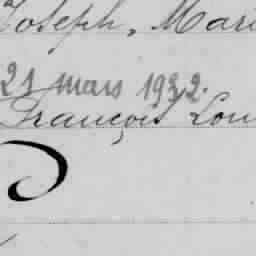 Joseph, Mari
21 mars 1932.
François Lou